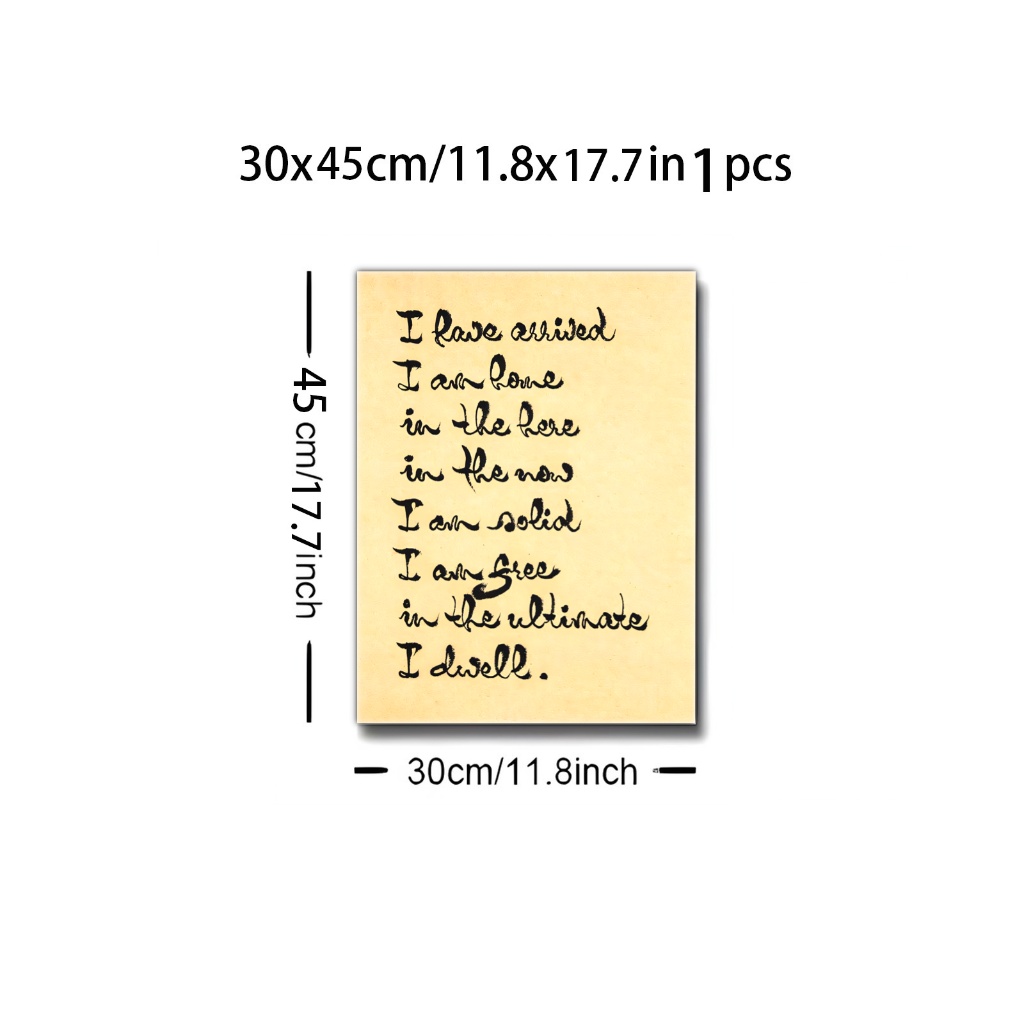 30x45cm/11.8x17.7in 1 pcs
45 cm/17.7inch
I have arrived
I am home
in the here
in the now
I am solid
I am free
in the ultimate
I dwell.
30cm/11.8inch